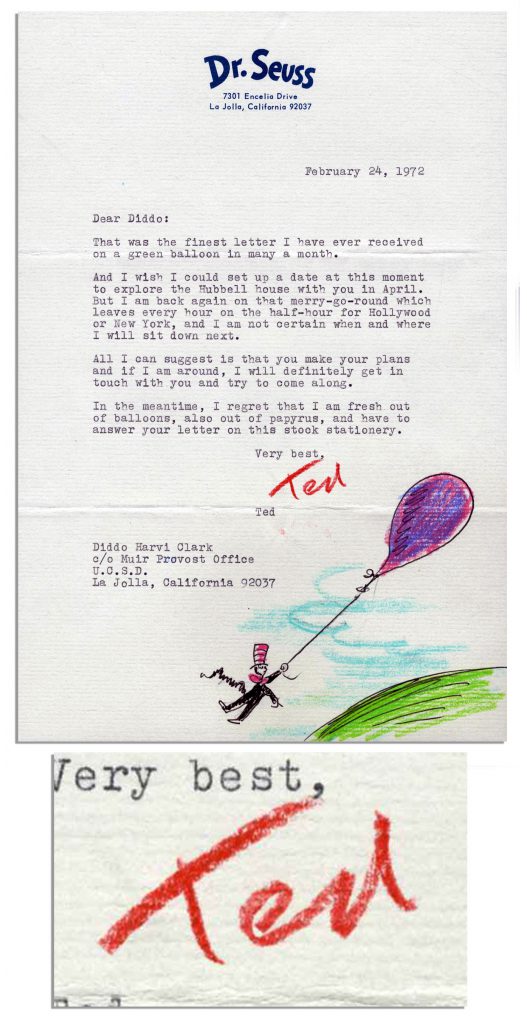 Dr. Seuss
7301 Encelia Drive
La Jolla, California 92037
February 24, 1972
Dear Diddo:
That was the finest letter I have ever received
on a green balloon in many a month.
And I wish I could set up a date at this moment
to explore the Hubbell house with you in April.
But I am back again on that merry-go-round which
leaves every hour on the half-hour for Hollywood
or New York, and I am not certain when and where
I will sit down next.
All I can suggest is that you make your plans
and if I am around, I will definitely get in
touch with you and try to come along.
In the meantime, I regret that I am fresh out
of balloons, also out of papyrus, and have to
answer your letter on this stock stationery.
Very best,
Ted
Ted
Diddo Harvi Clark
c/o Muir Provost Office
U.C.S.D.
La Jolla, California 92037
Very best,
Ted